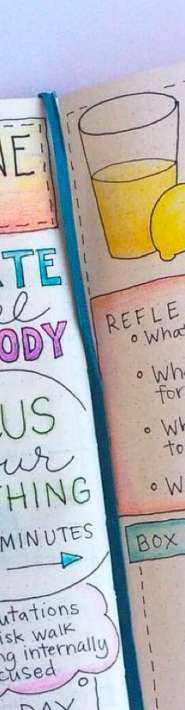 NE
ATE
el
ODY
US
ur
THING
MINUTES
utations
isk walk
ng internally
cused
DAY
REFLE
What
Wha
for
Wh
to
W
BOX